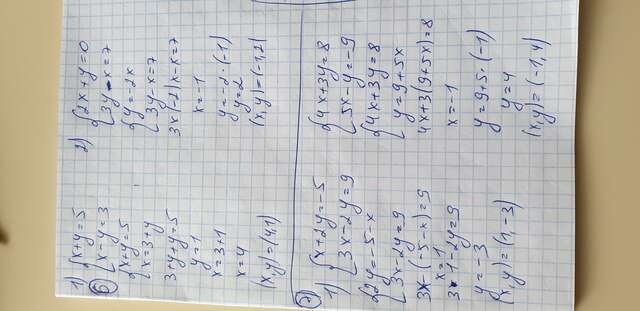 6
1) { x+y=5
x-y=3
{ x+y=5
x=3+y
3+y+y=5
y=1
x=3+1
x=4
(x,y)=(4,1)
2) { 2x+y=0
3y-x=7
{ y=-2x
3y-x=7
3x(-2)x-x=7
x=-1
y=-2·(-1)
y=2
(x,y)=(-1,2)
7
1) { x+2y=-5
3x-2y=9
{ 2y=-5-x
3x-2y=9
3x-(-5-x)=9
x=1
3·1-2y=9
y=-3
(x,y)=(1,-3)
{ 4x+3y=8
5x-y=-9
{ 4x+3y=8
y=9+5x
4x+3(9+5x)=8
x=-1
y=9+5·(-1)
y=4
(x,y)=(-1,4)